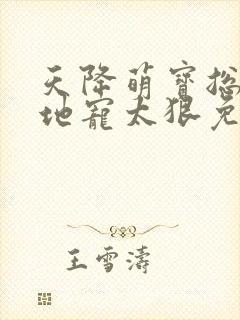 天降萌寶總
地寵太狠免
王雪濤